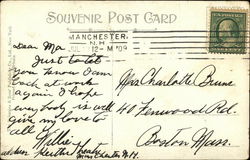 SOUVENIR POST CARD
MANCHESTER.
N.H.
12-M '09
Dear Ma
Just to let
you know I am
back at work
again. I hope
everybody is well
give my love to
all
Willie
Manchester N.H.
Mrs Charlotte Brune
40 Fenwood Rd.
Boston Mass.